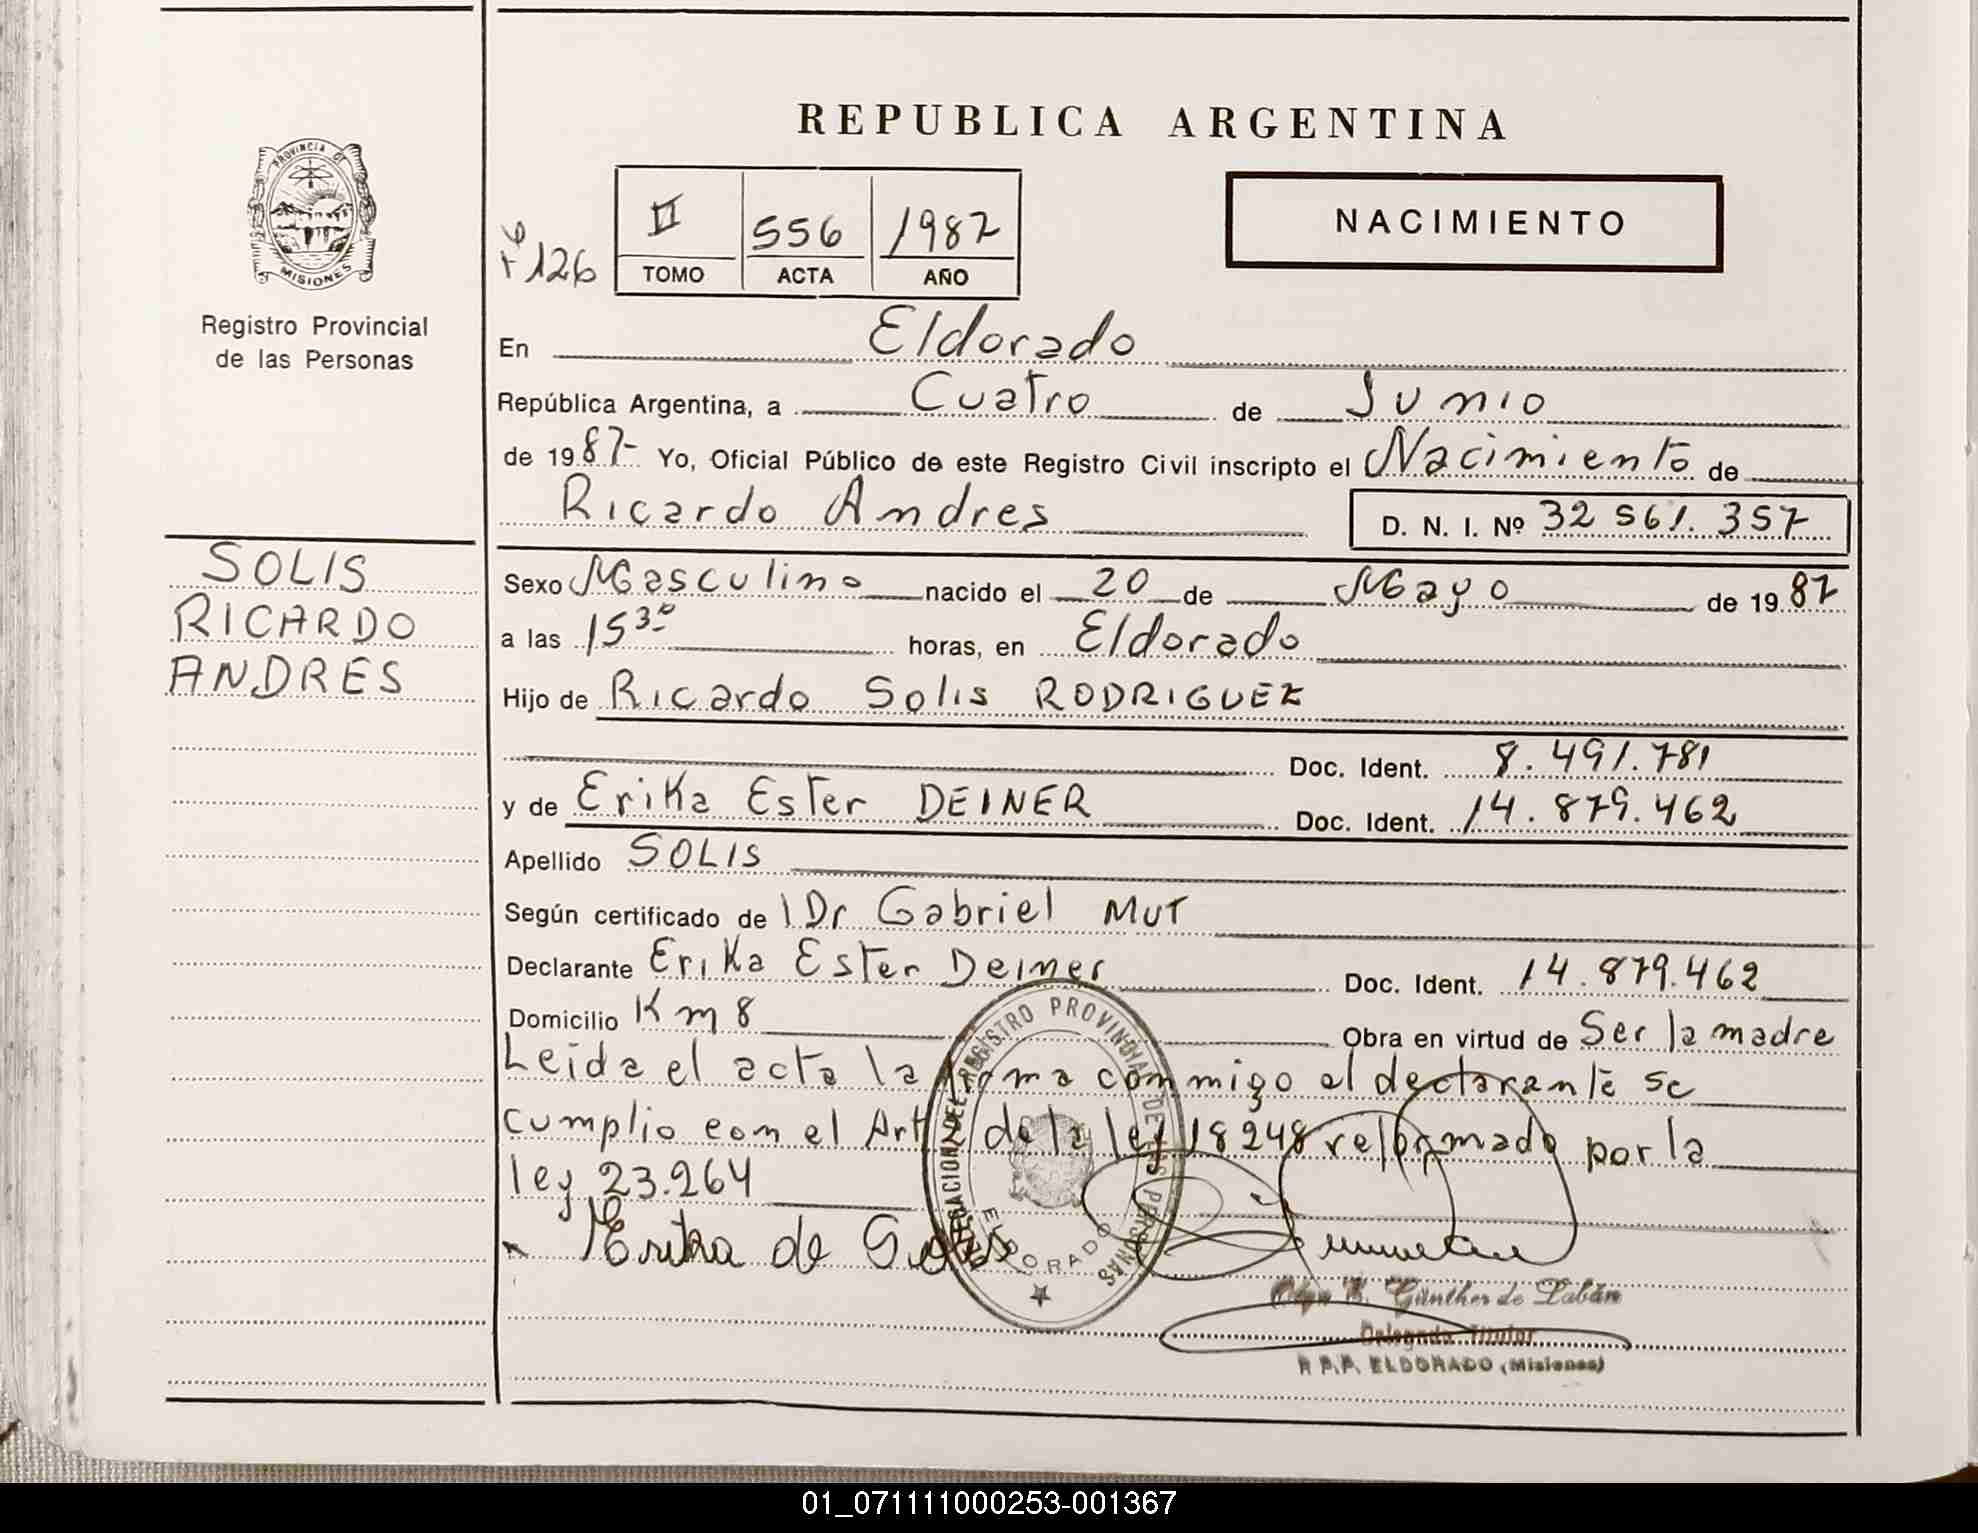 REPUBLICA ARGENTINA
PROVINCIA DE
MISIONES
Registro Provincial
de las Personas
Fº 126
II 556 1987
TOMO ACTA AÑO
NACIMIENTO
En Eldorado
República Argentina, a Cuatro de Junio
de 1987- Yo, Oficial Público de este Registro Civil inscripto el Nacimiento de
Ricardo Andres D. N. I. Nº 32 561. 357
SOLIS
RICARDO
ANDRES
Sexo Masculino nacido el 20 de Mayo de 1987
a las 15 30 horas, en Eldorado
Hijo de Ricardo Solis RODRIGUEZ
Doc. Ident. 8.491.781
y de Erika Ester DEINER Doc. Ident. 14.879.462
Apellido SOLIS
Según certificado de Dr Gabriel MUT
Declarante Erika Ester Deiner Doc. Ident. 14.879.462
Domicilio Km 8 Obra en virtud de Ser la madre
Leida el acta la firma conmigo el declarante se
cumplio con el Art de la ley 18248 reformado por la
ley 23.264
Erika de
DELEGACION DEL REGISTRO PROVINCIAL DE LAS PERSONAS
ELDORADO
Olga Günther de Labán
Delegada Titular
R.P.P. ELDORADO (Misiones)
01_071111000253-001367